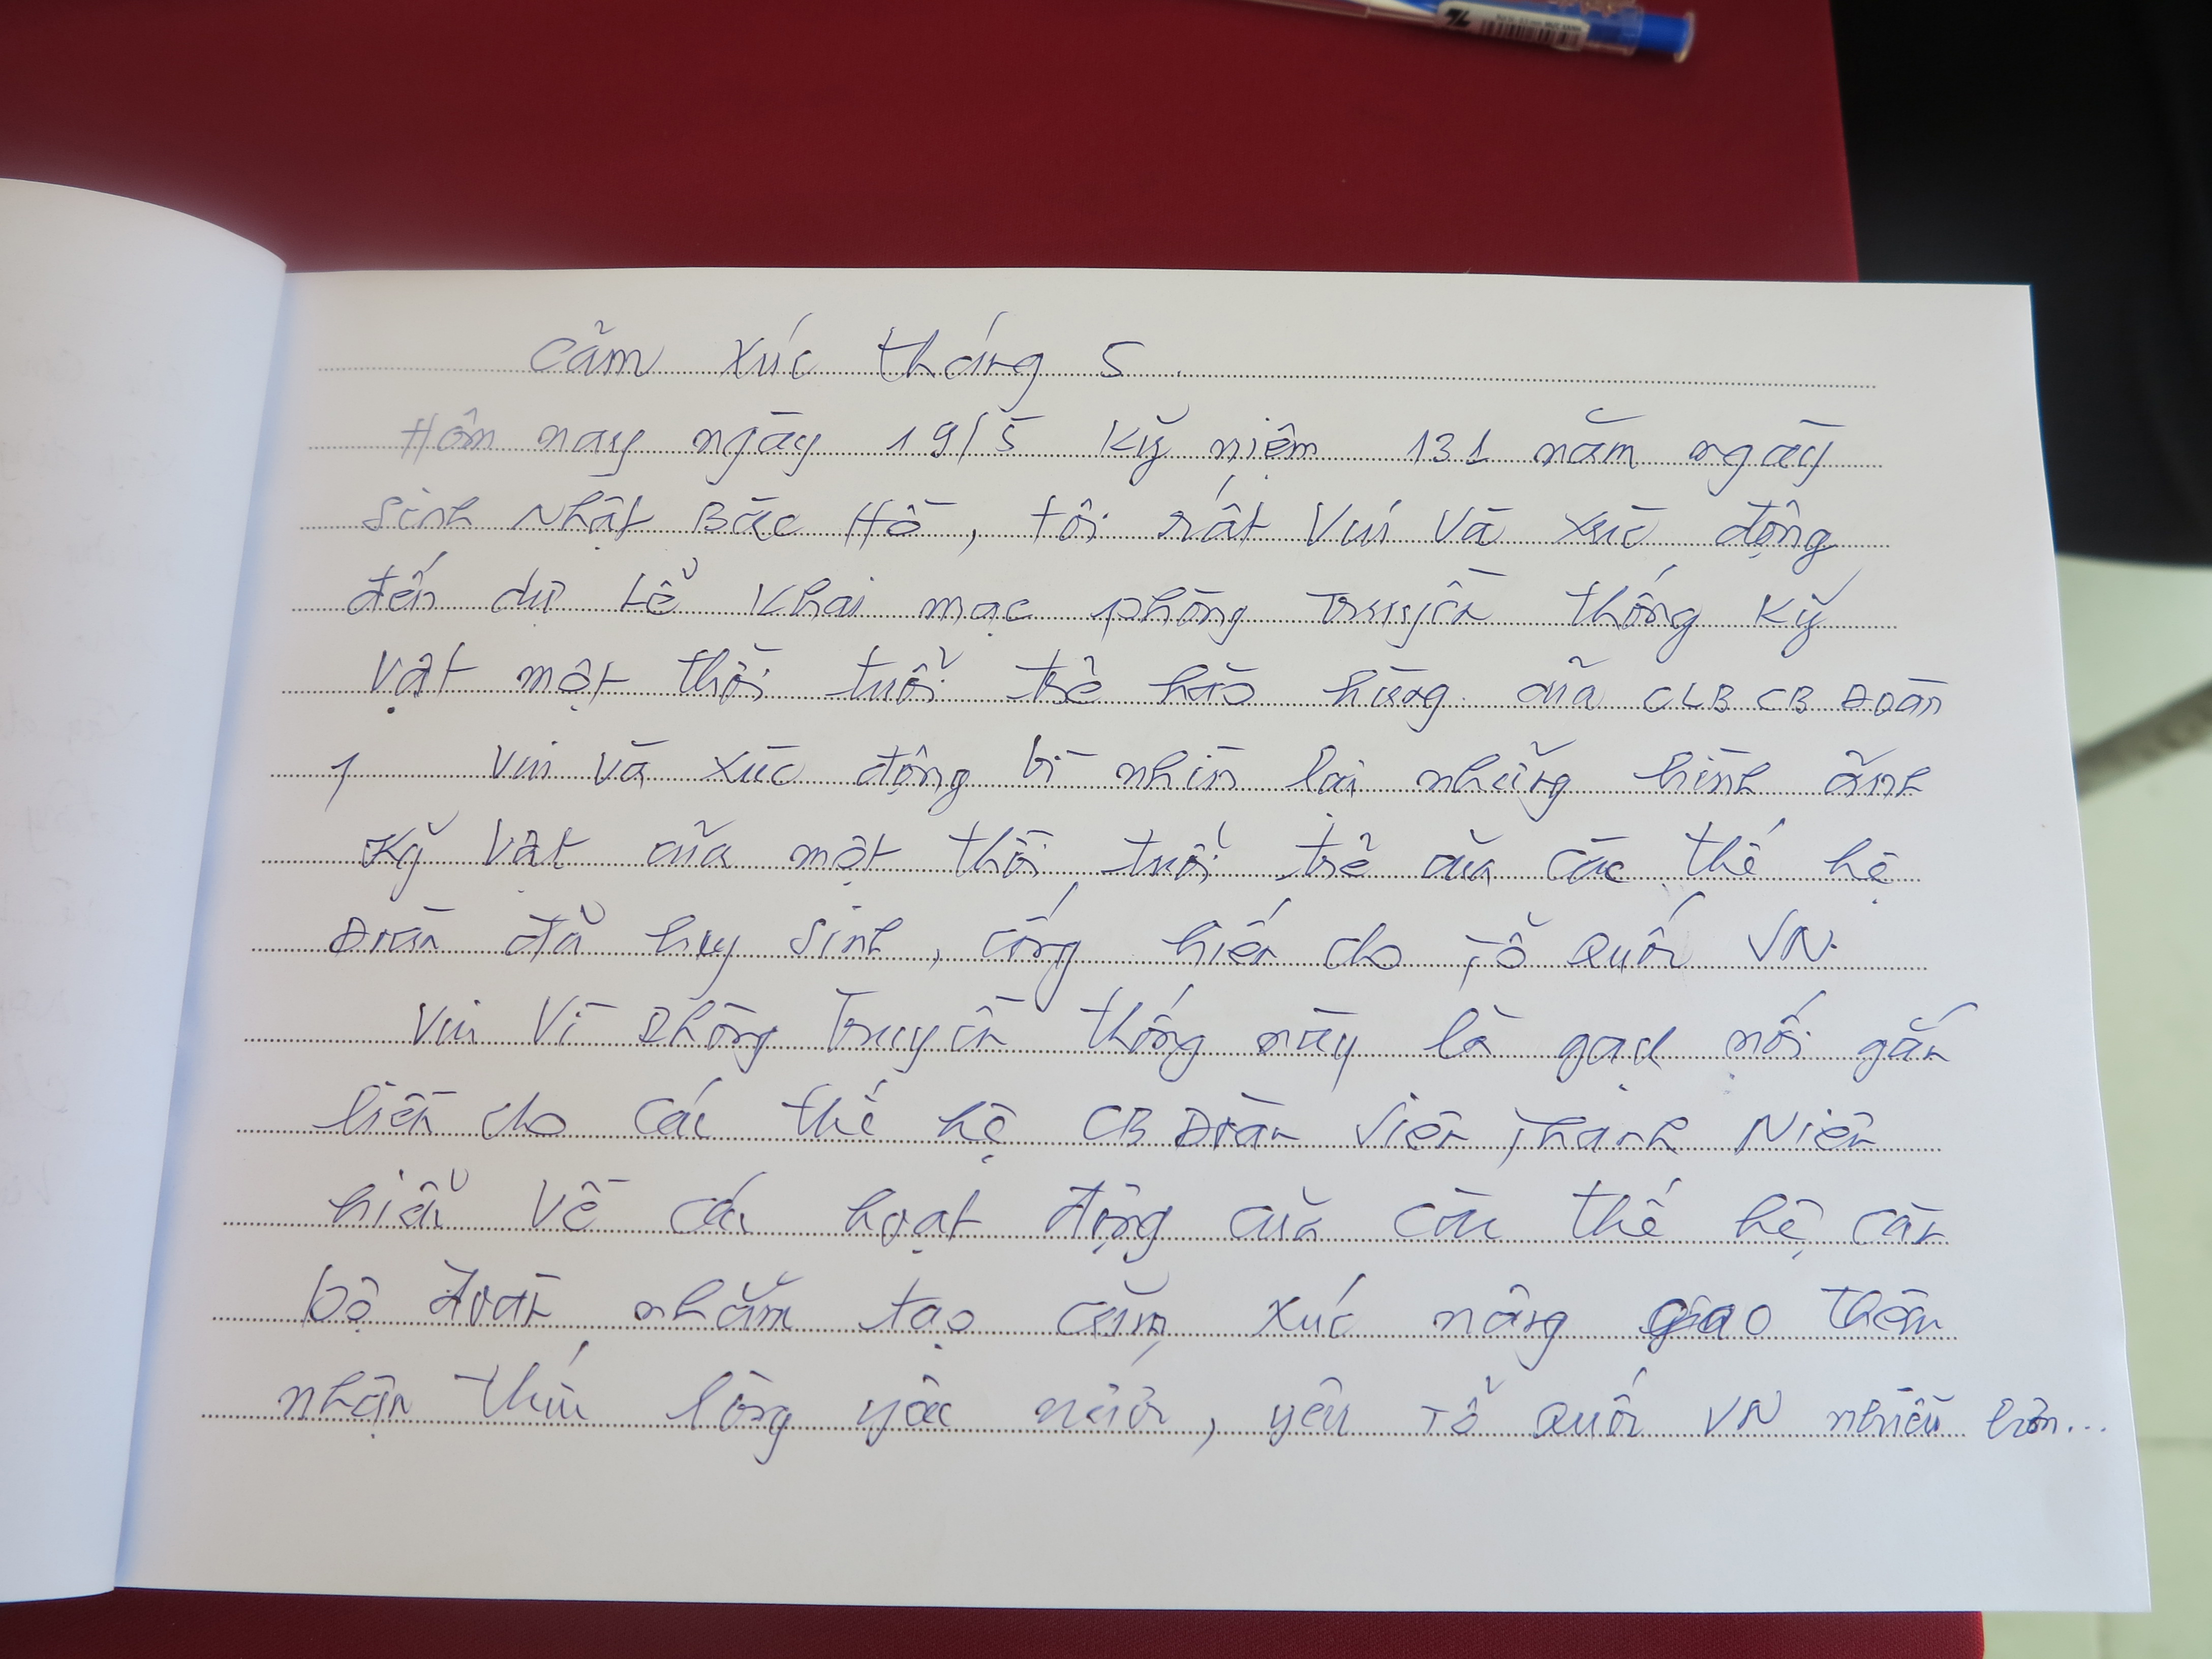 Cảm xúc tháng 5.
Hôm nay ngày 19/5 Kỷ niệm 131 năm ngày
sinh Nhật Bác Hồ, tôi rất Vui Và xúc động
đến dự Lễ Khai mạc phòng Truyền thống Kỷ
Vật một thời tuổi trẻ hào hùng của CLB CB Đoàn
Vui và xúc động vì nhìn lại những hình ảnh
Kỷ Vật của một thời tuổi trẻ của các thế hệ
Đoàn đã hy sinh, cống hiến cho Tổ Quốc VN.
Vui Vì Phòng Truyền thống này là gạch nối gắn
liền cho các thế hệ CB Đoàn Viên Thanh Niên
hiểu Về các hoạt động của các thế hệ cán
bộ đoàn nhằm tạo cảm xúc nâng cao thêm
nhận thức lòng yêu nước, yêu Tổ Quốc VN nhiều hơn...